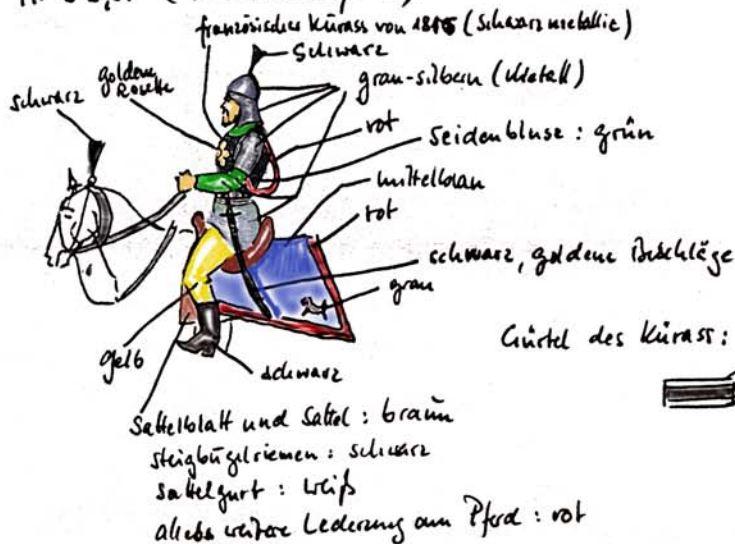 französischer Kürass von 1815 (schwarzmetallic)
schwarz
goldene Rosette
grau-silbern (Metall)
schwarz
rot
Seidenbluse : grün
mittelblau
rot
schwarz, goldene Beschläge
grau
Gürtel des Kürass :
gelb
schwarz
Sattelblatt und Sattel : braun
Steigbügelriemen : schwarz
Sattelgurt : weiß
weitere Lederzeug am Pferd : rot